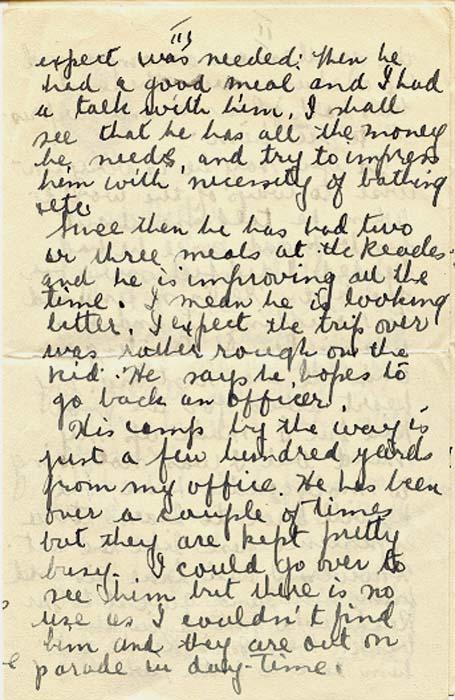 III
expect was needed. Then he
had a good meal and I had
a talk with him. I shall
see that he has all the money
he needs, and try to impress
him with necessity of bathing
etc
Since then he has had two
or three meals at the Reades
and he is improving all the
time. I mean he is looking
better. I expect the trip over
was rather rough on the
kid. He says he hopes to
go back an officer.
His camp by the way is
just a few hundred yards
from my office. He has been
over a couple of times
but they are kept pretty
busy. I could go over to
see him but there is no
use as I couldn't find
him and they are out on
parade in day-time.